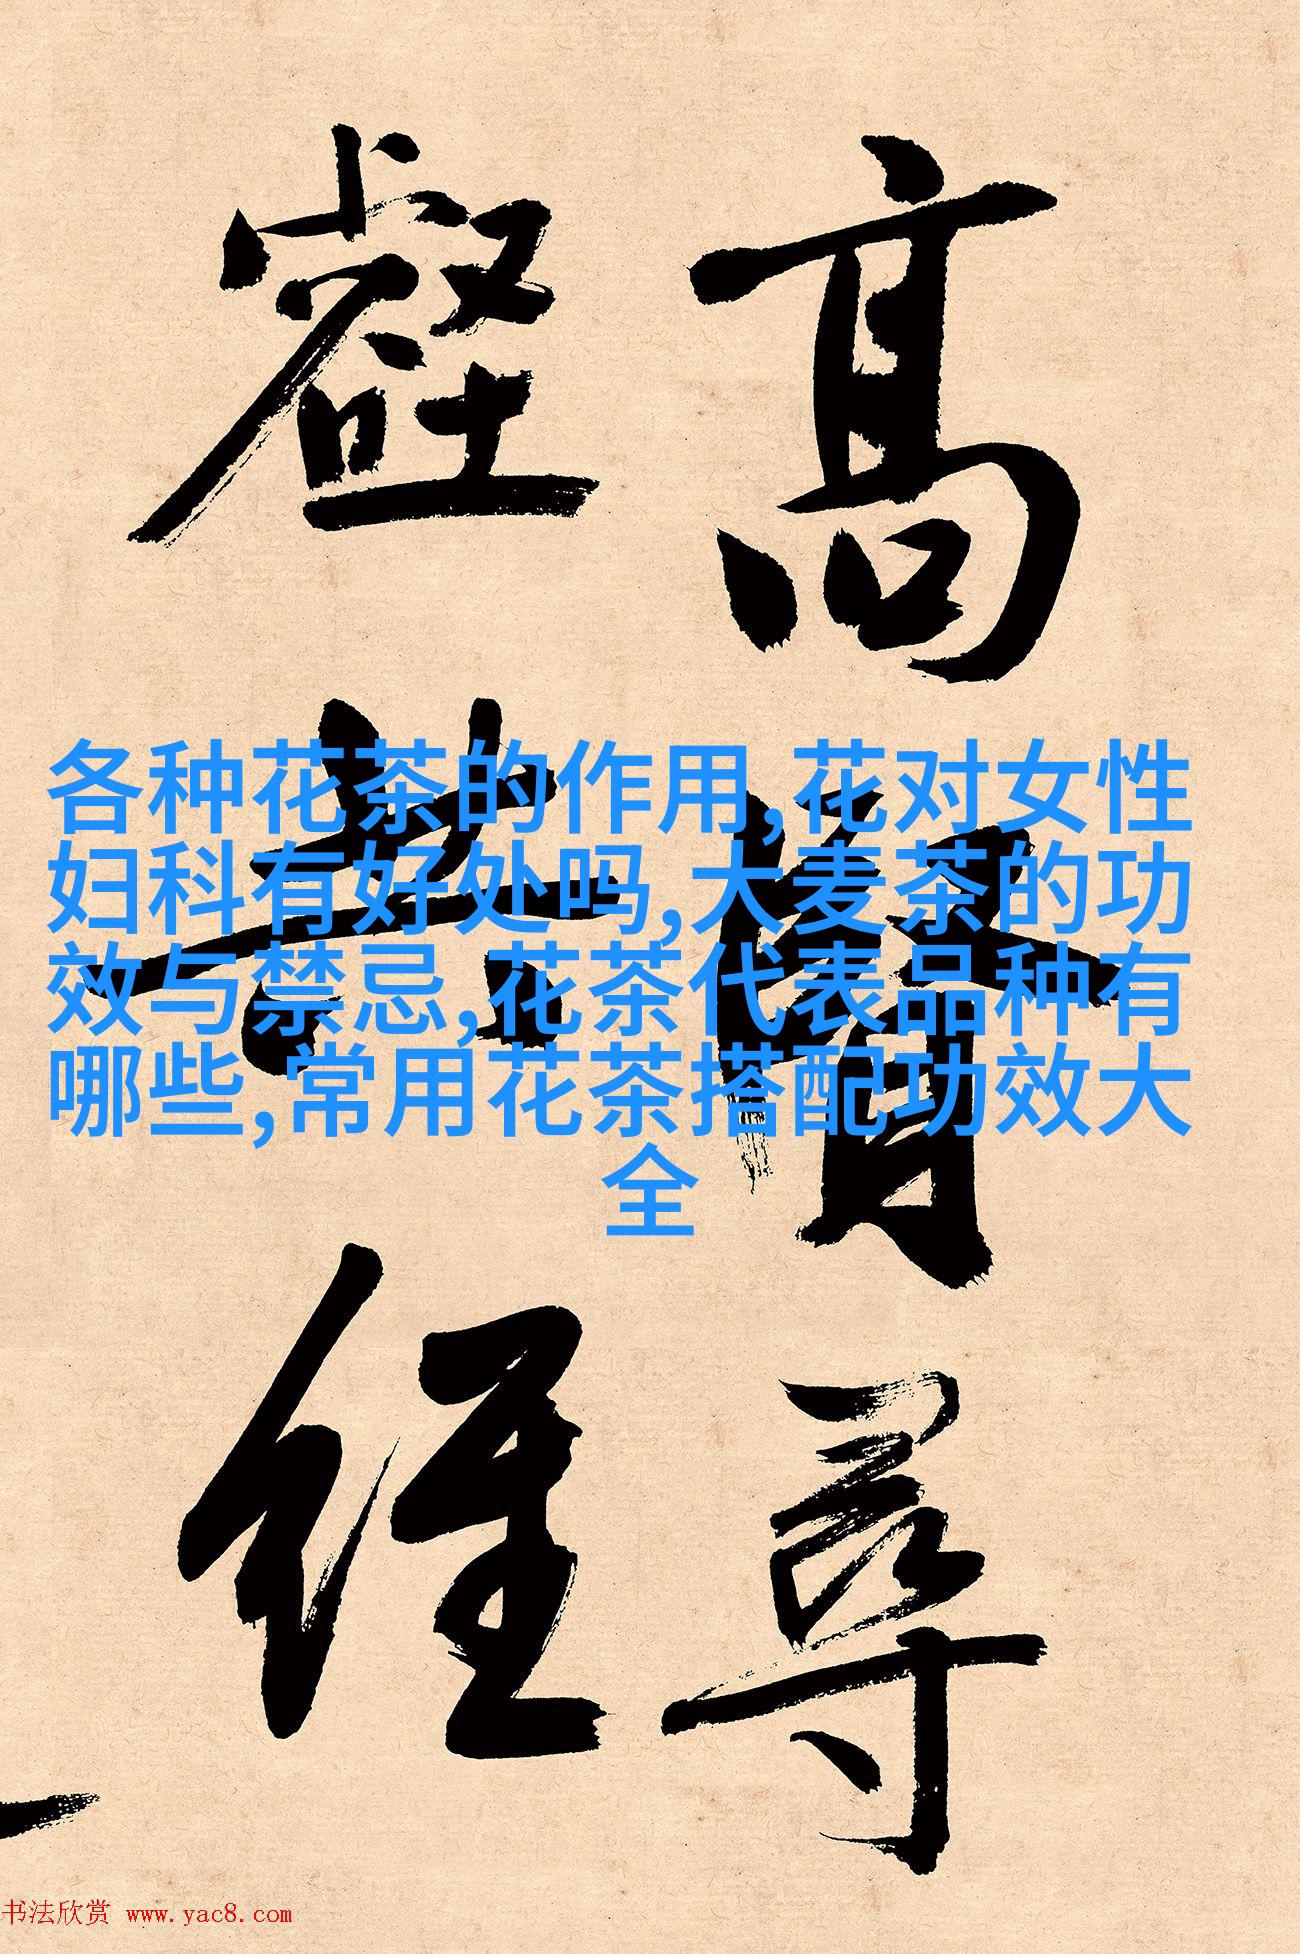 高賢尋
壑共經
各种花茶的作用,花对女性
妇科有好处吗,大麦茶的功
效与禁忌,花茶代表品种有
哪些,常用花茶搭配功效大
全
书法欣赏 www.yac8.com